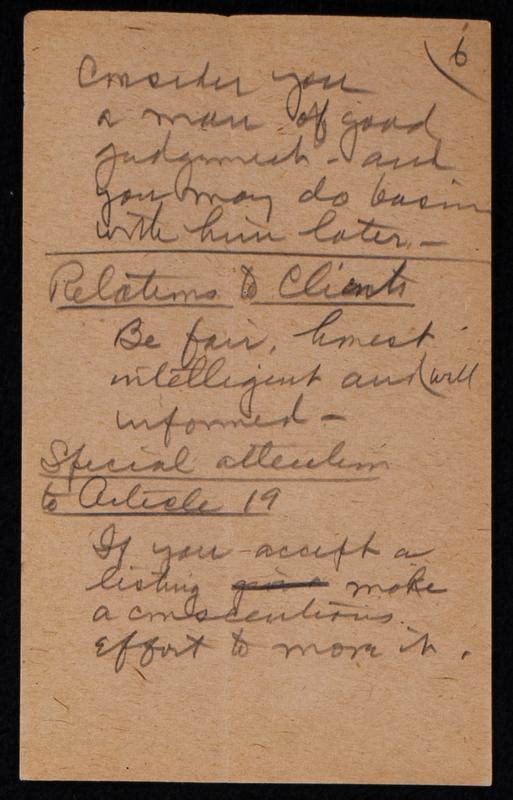 6
Consider you
a man of good
judgment - and
you may do busin
with him later. -
Relations to Clients
Be fair, honest
intelligent and (well
informed -
Special attention
to Article 19
If you accept a
listing make
a conscentious
effort to move it.